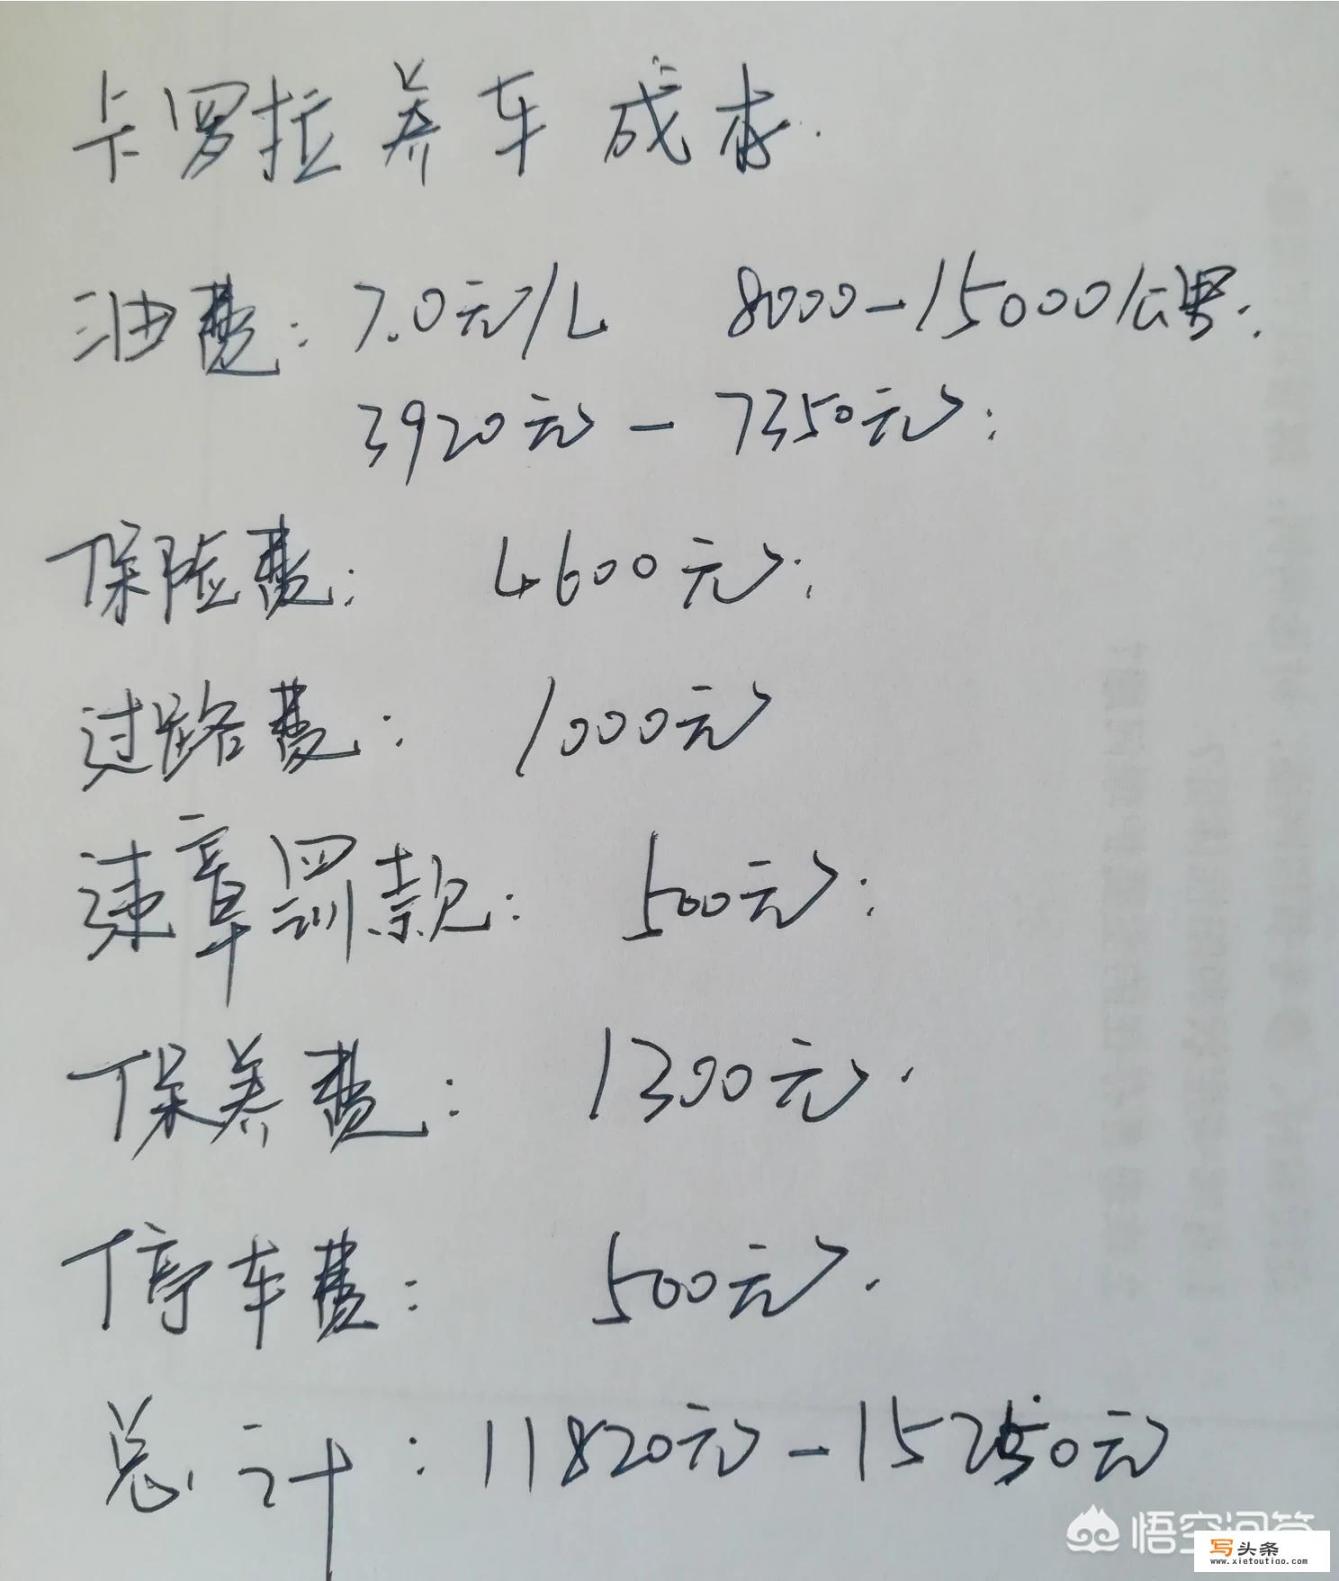 卡罗拉养车成本.
油费: 7.0元/L 8000-15000公里.
3920元-7350元;
保险费: 4600元;
过路费: 1000元
违章罚款: 500元;
保养费: 1300元.
停车费: 500元.
总计: 11820元-15250元
悟空问答
写头条
www.xietoutiao.com